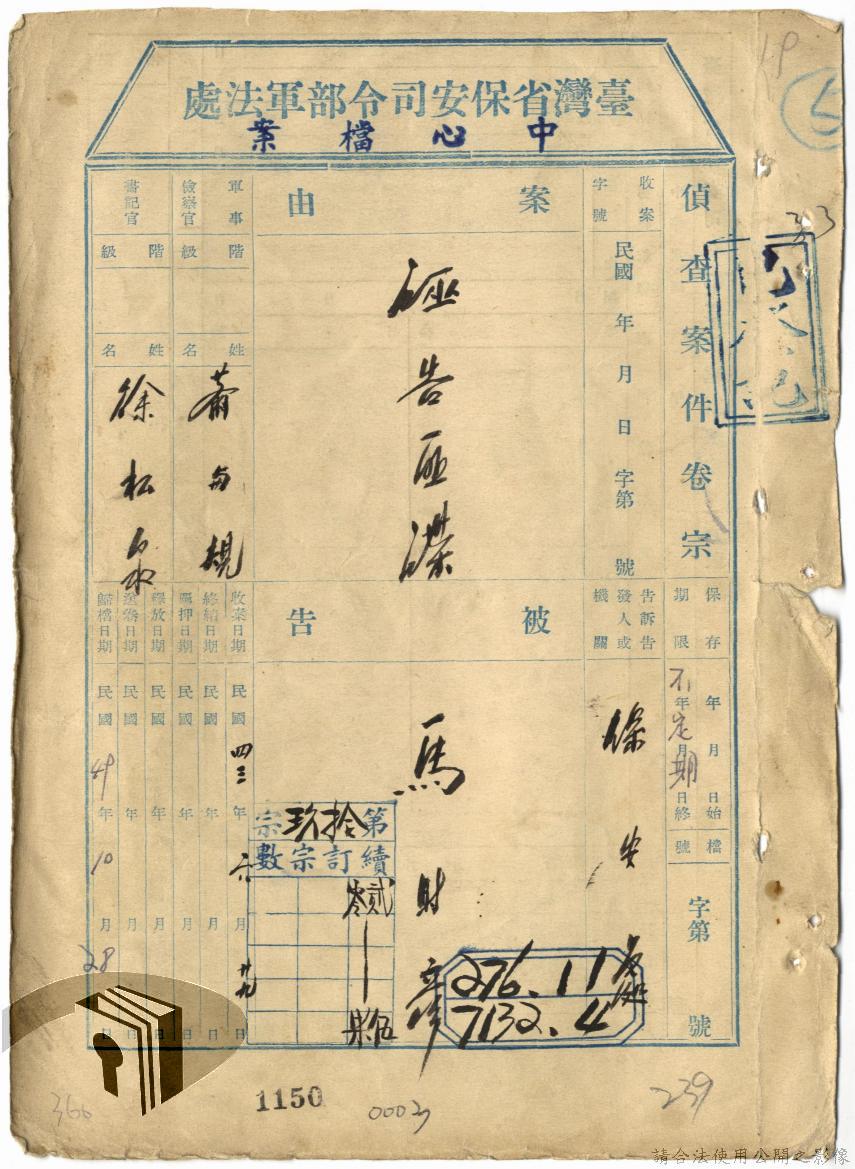 臺灣省保安司令部軍法處
中心檔案
偵查案件卷宗
收案
字號
民國 年 月 日 字第 號
案由
誣告匪諜
軍事
檢察官
階級
姓名
書記官
階級
姓名
徐松泉
保存
期限
年 月 日始
年 月 日終
不定期
檔號
字第 號
告訴告
發人或
機關
保安處
被告
馬財彥
收案日期
民國 四三 年 六 月 廿九 日
終結日期
民國 年 月 日
羈押日期
民國 年 月 日
釋放日期
民國 年 月 日
送卷日期
民國 年 月 日
歸檔日期
民國 49 年 10 月 28 日
第拾玖宗
續訂宗數
276.11
7132.4
5
33
366
1150
0003
239
請合法使用公開之影像